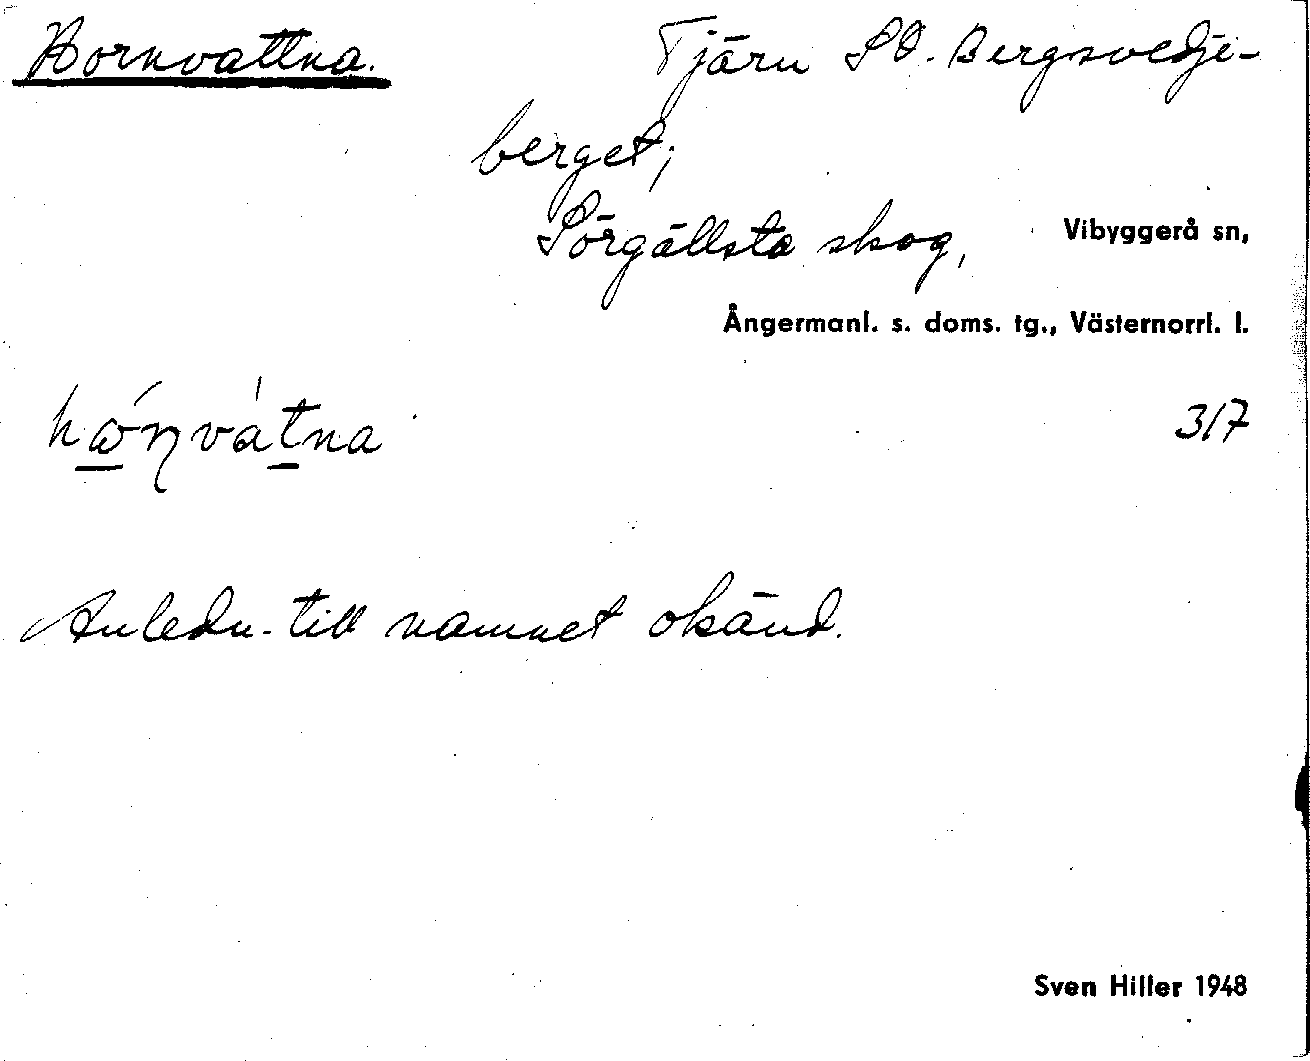 Hornvattna. Tjärn SO. Bergsvedje-
berget;
Sörgällsta skog, Vibyggerå sn,
Ångermanl. s. doms. tg., Västernorrl. l.
317
Anledn. till namnet okänd.
Sven Hiller 1948